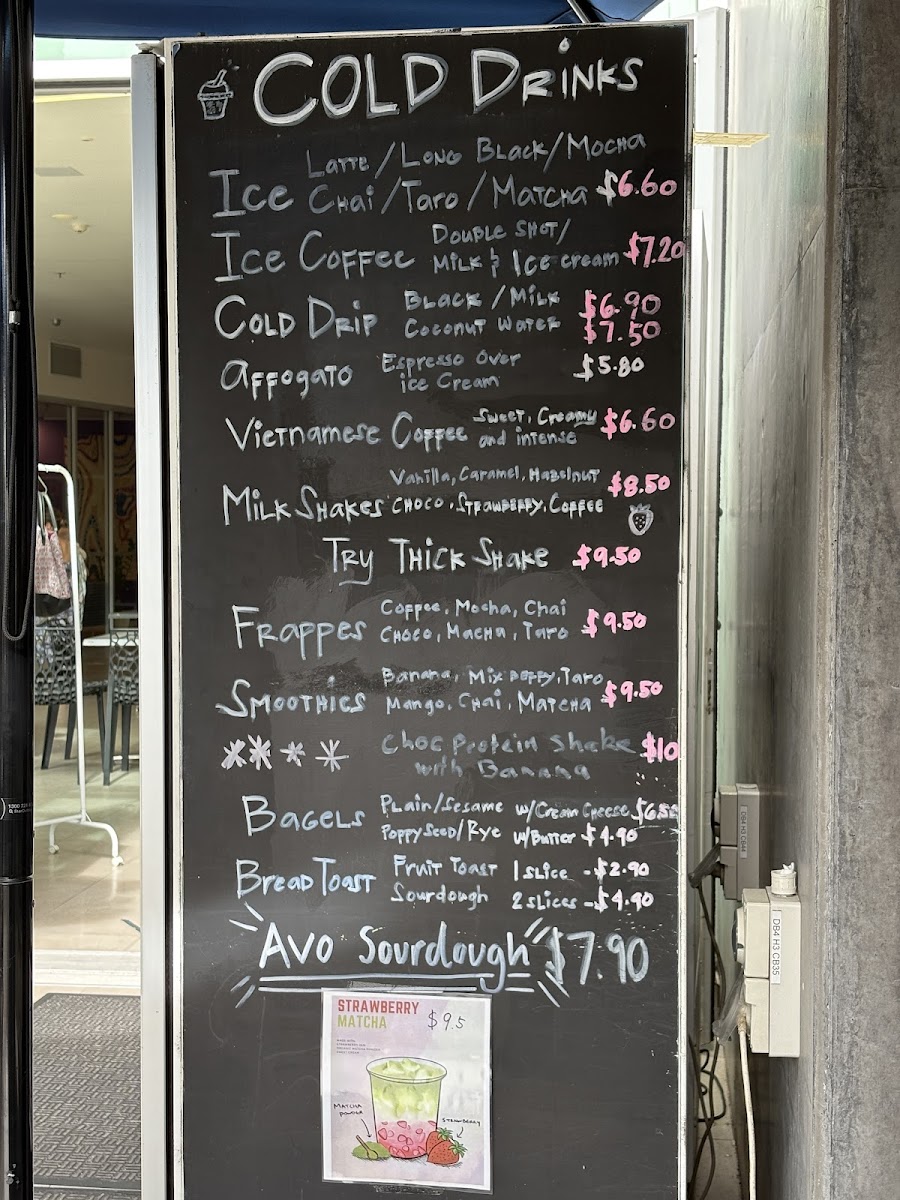 COLD DRINKS
Latte / Long Black / Mocha
Ice Chai / Taro / Matcha $6.60
Ice Coffee Double Shot /
Milk & Ice cream $7.20
Cold Drip Black / Milk $6.90
Coconut Water $7.50
Affogato Espresso Over
ice Cream $5.80
Vietnamese Coffee Sweet, Creamy
and intense $6.60
Vanilla, Caramel, Hazelnut
MilkShakes CHOCO, STRAWBERRY, COFFEE $8.50
Try Thick Shake $9.50
Frappes Coffee, Mocha, Chai
CHOCO, Macha, Taro $9.50
Smoothies Banana, Mix berry, Taro
Mango, Chai, Matcha $9.50
Choc Protein Shake $10
with Banana
Bagels Plain/Sesame w/Cream Cheese
Poppy Seed/Rye w/Butter $4.90
Bread Toast Fruit Toast 1 slice - $2.90
Sourdough 2 slices - $4.90
Avo Sourdough $7.90
STRAWBERRY
MATCHA $9.5
MATCHA
POWDER
STRAWBERRY
DB4 H3 CB35